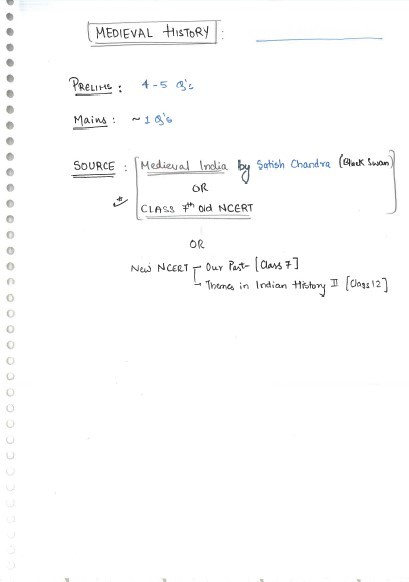 MEDIEVAL HISTORY :
PRELIMS : 4-5 Q's
Mains : ~1 Q's
SOURCE : [Medieval India by Satish Chandra (Black Swan)
OR
CLASS 7th old NCERT]
OR
New NCERT - Our Past - [Class 7]
- Themes in Indian History II [Class 12]